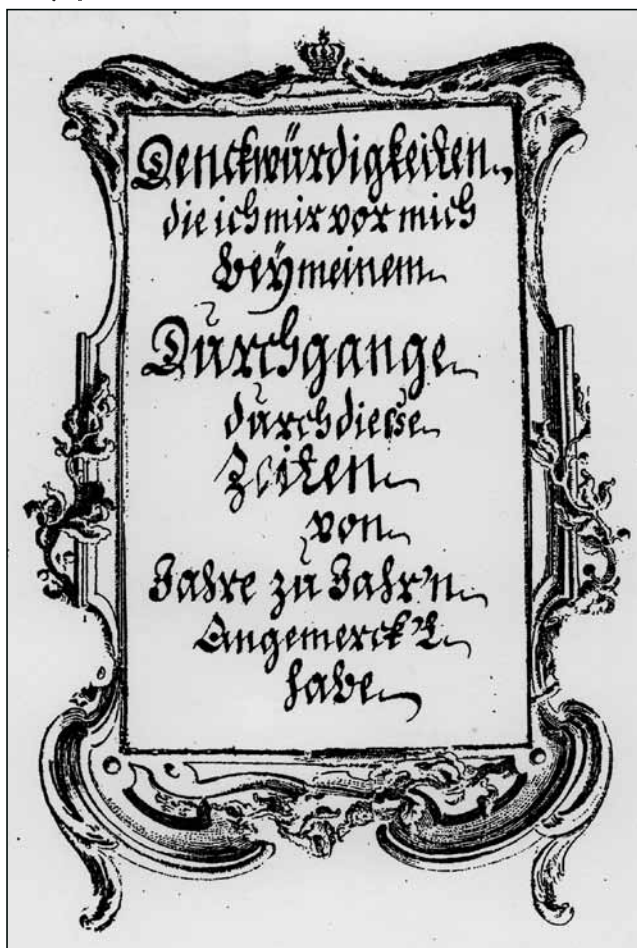 Denckwürdigkeiten,
die ich mir vor mich
bey meinem
Durchgange
durch diesse
Zeiten
von
Jahre zu Jahr'n
Angemerck't
habe